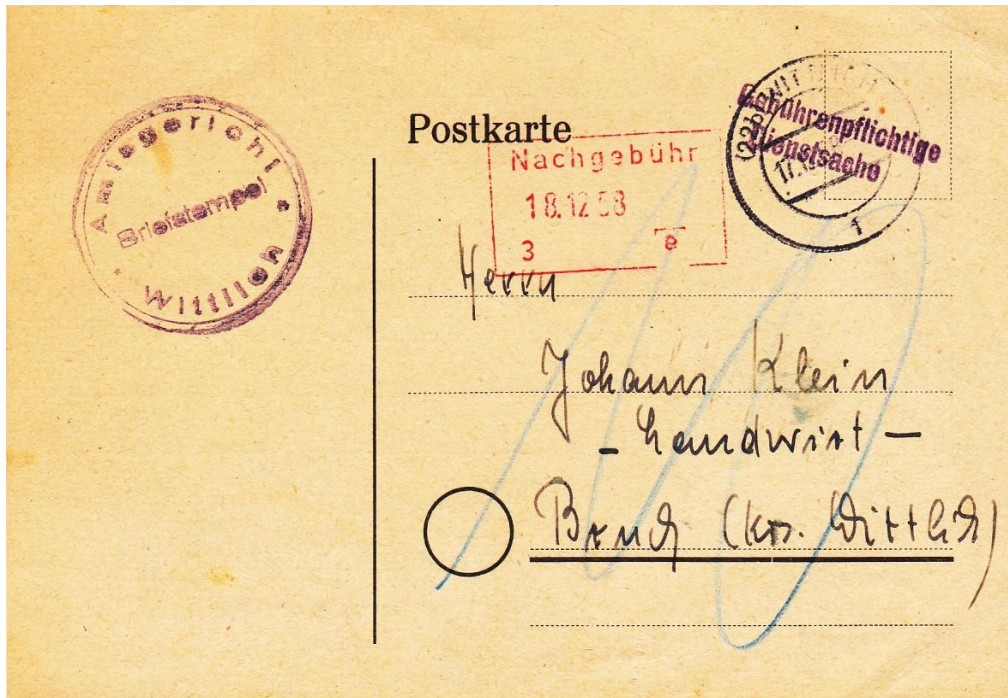 Amtsgericht
Briefstempel
Wittlich
Postkarte
Nachgebühr
18.12.58
3 e
(22b) WITTLICH
17.12.
1
Gebührenpflichtige
Dienstsache
Herrn
Johann Klein
- Landwirt -
Bruch (Krs. Wittlich)
10